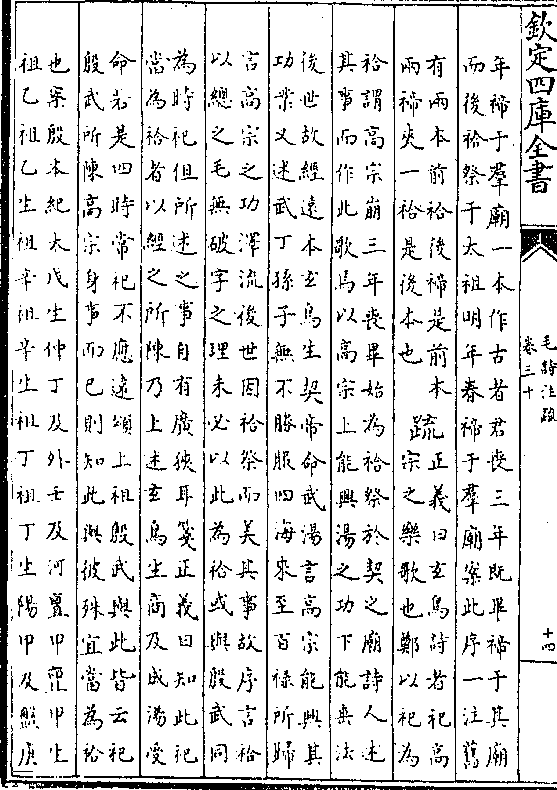 欽定四庫全書
毛詩注疏
卷三十
十四
年禘于羣廟一本作古者君喪三年既畢禘于其廟
而後祫祭于太祖明年春禘于羣廟案此序一注舊
有兩本前祫後禘是前本
兩禘夾一祫是後本也
疏
正義曰玄鳥詩者祀高
宗之樂歌也鄭以祀為
祫謂高宗崩三年喪畢始為祫祭於契之廟詩人述
其事而作此歌焉以高宗上能興湯之功下能垂法
後世故經遠本玄鳥生契帝命武湯言高宗能興其
功業又述武丁孫子無不勝服四海來至百禄所歸
言高宗之功澤流後世因祫祭而美其事故序言祫
以總之毛無破字之理未必以此為祫或與殷武同
為時祀但所述之事自有廣狹耳箋正義曰知此祀
當為祫者以經之所陳乃上述玄鳥生商及成湯受
命若是四時常祀不應遠頌上祖殷武與此皆云祀
殷武所陳高宗身事而已則知此與彼殊宜當為祫
也案殷本紀太戊生仲丁及外壬及河亶甲亶甲生
祖乙祖乙生祖辛祖辛生祖丁祖丁生陽甲及盤庚